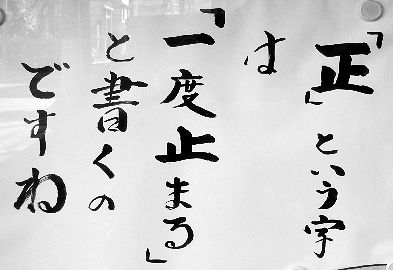 「正」という字
は
「一度止まる」
と書くの
ですね